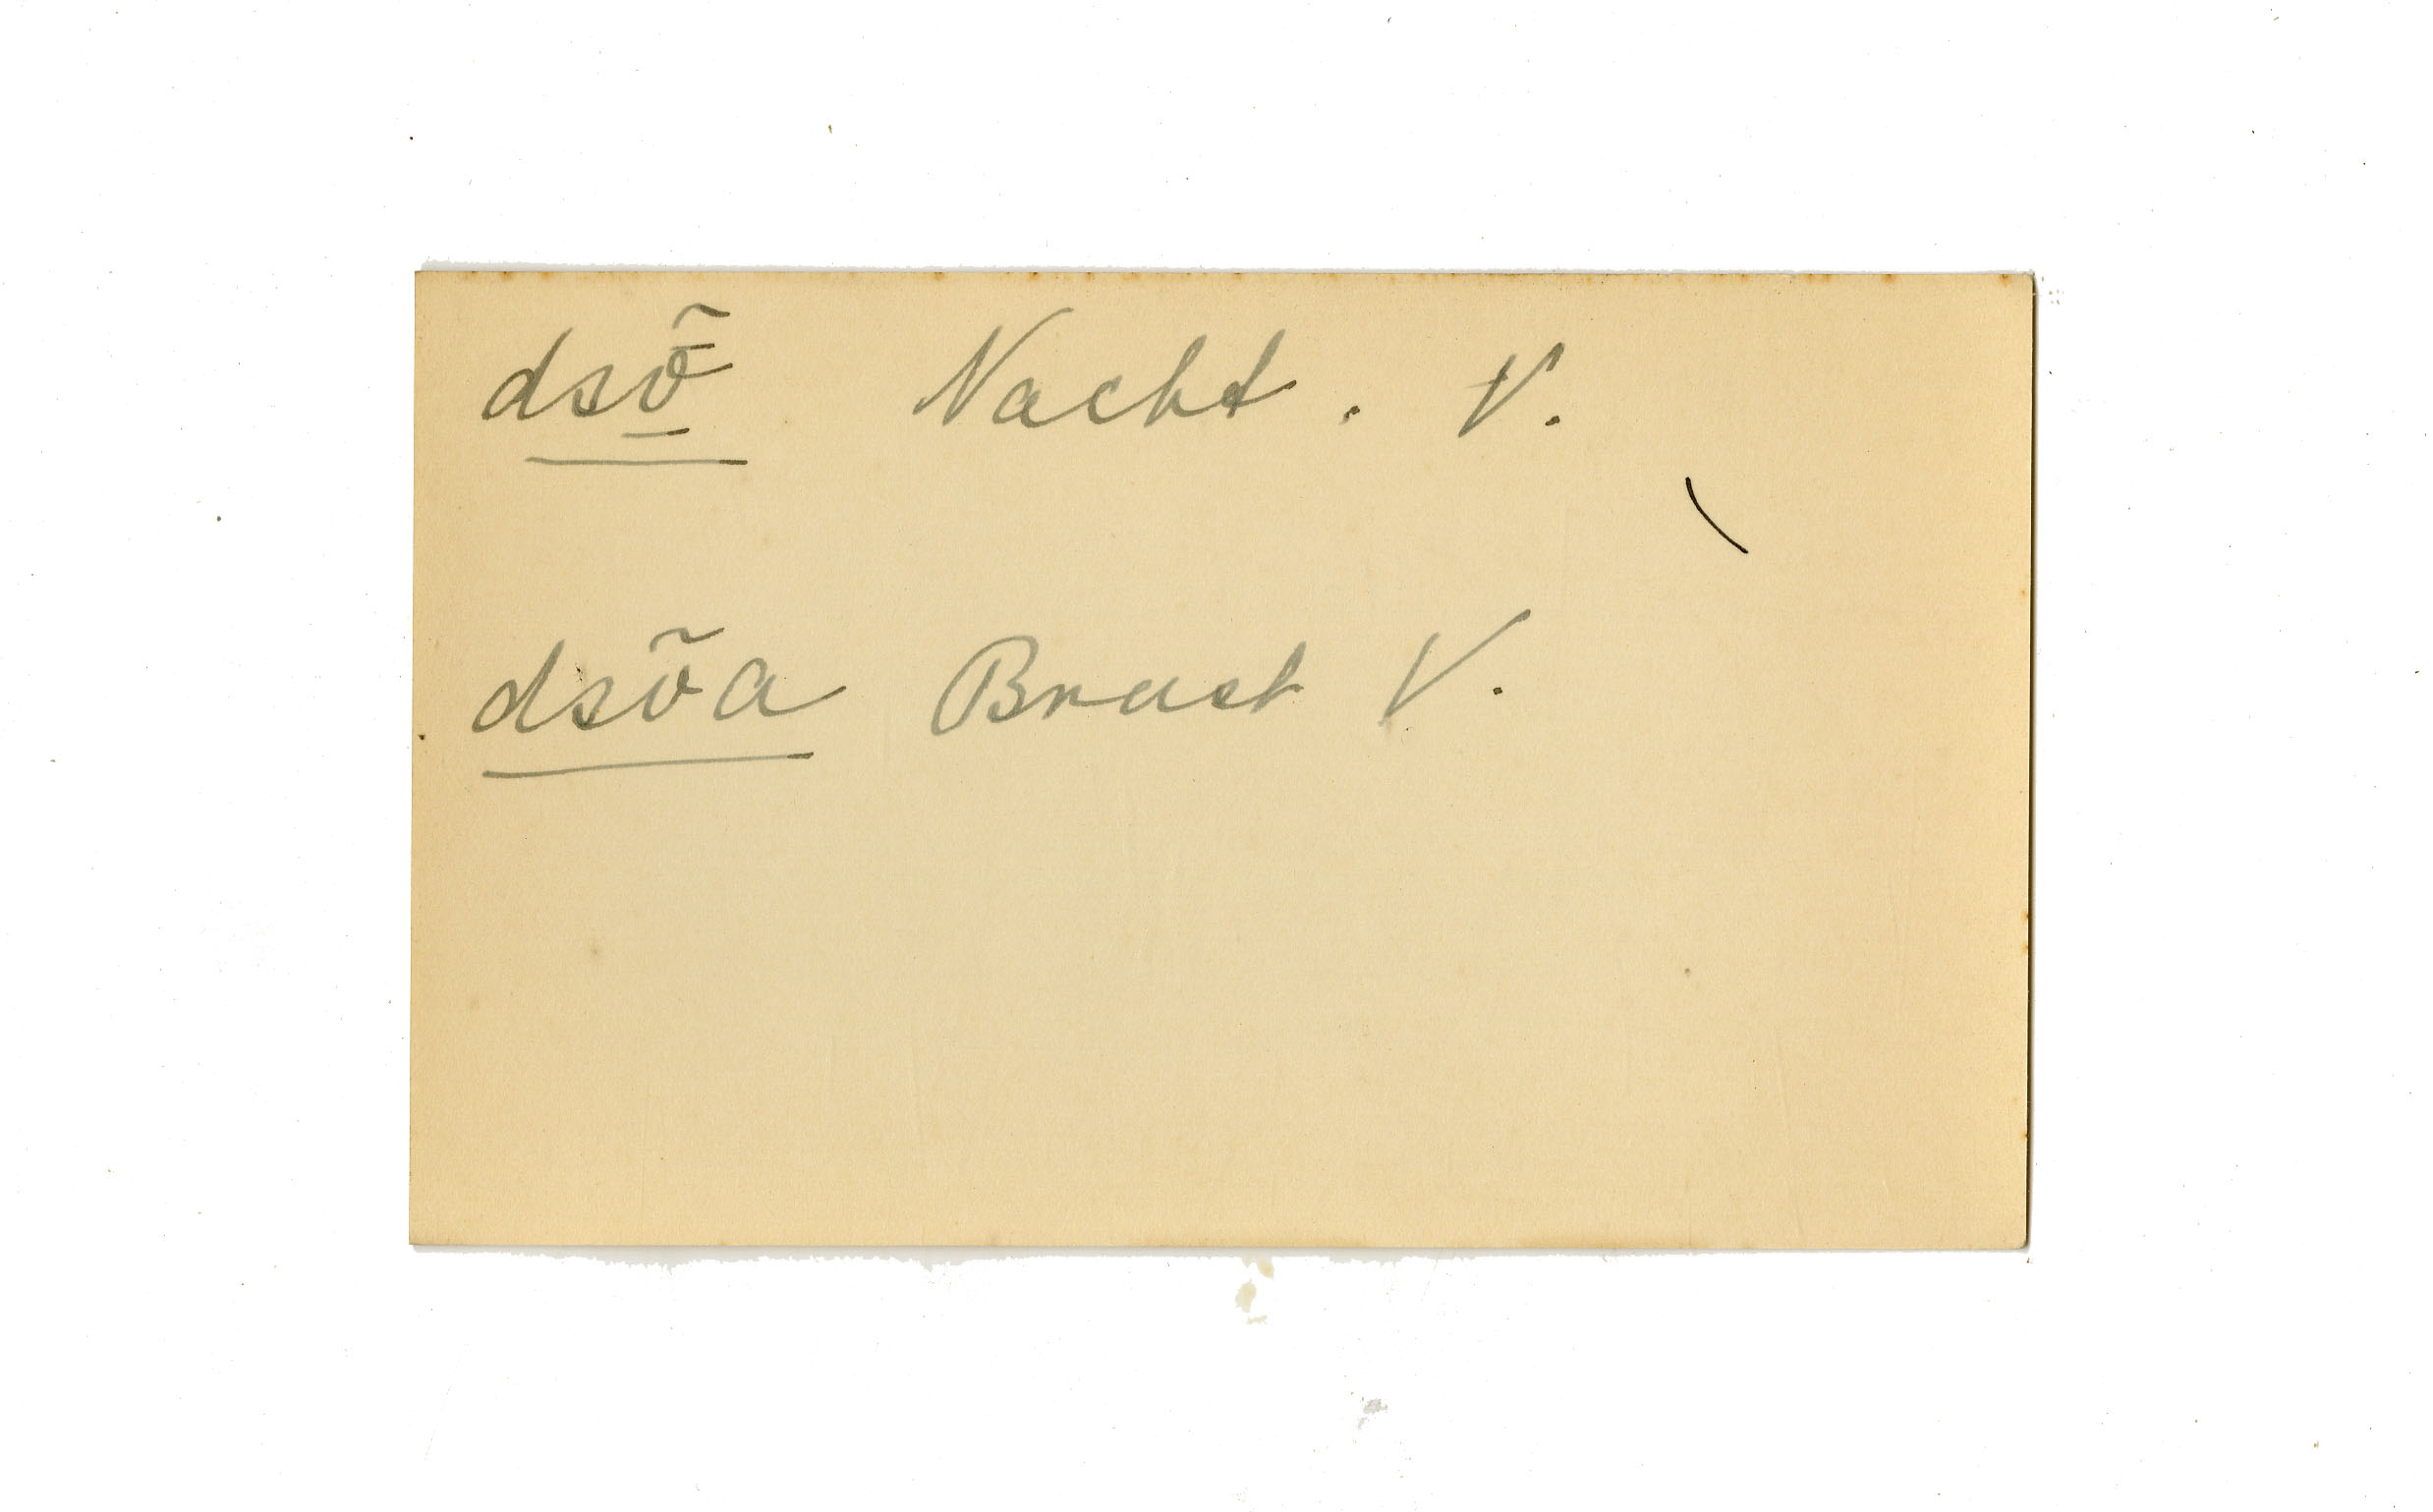 dsō̱̃ Nacht. V.
dsõa Brust V.